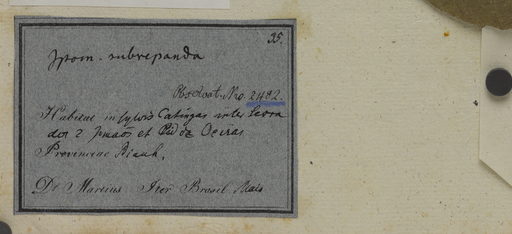 35.
Ipom. subrepanda
Obs. No. 2482.
Habitat in sylvis Catingas inter Serra
dos 2 Irmaõs et Cid de Oeiras
Provinciae Piauh.
Dr Martius Iter Brasil. Maio